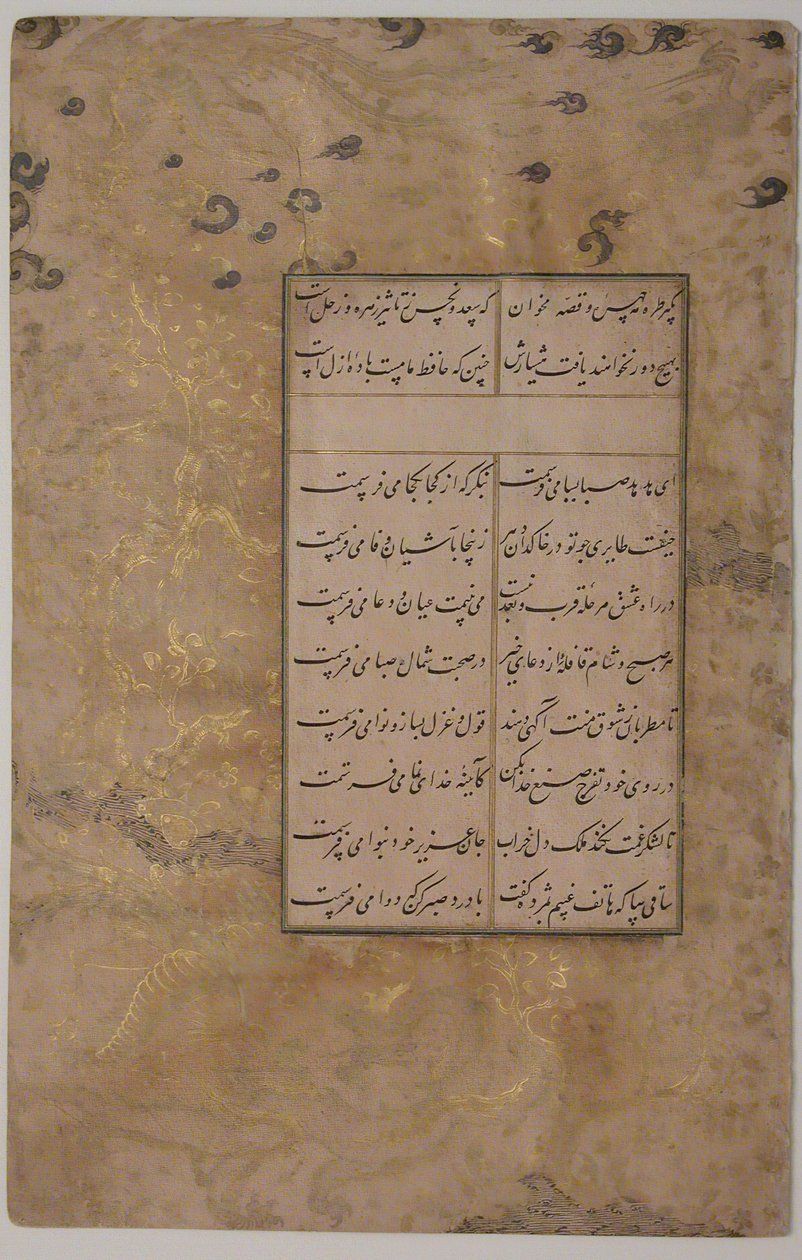 بگیر طره مه چهره و قصه مخوان که سعد و نحس ز تاثیر زهره و زحل است
بهیچ دور نخواهند یافت هشیارش چنین که حافظ ما مست باده ازل است
ای هدهد صبا بسبا می فرستمت بنگر که از کجا بکجا می فرستمت
حیفست طایری چو تو در خاکدان دهر زینجا بآشیان وفا می فرستمت
در راه عشق مرحله قرب و بعد نیست می بینمت عیان و دعا می فرستمت
هر صبح و شام قافلهٔ از دعای خیر در صحبت شمال و صبا می فرستمت
تا مطربان ز شوق منت آگهی دهند قول و غزل بساز و نوا می فرستمت
در روی خود تفرج صنع خدا بکن کآیینهٔ خدای نما می فرستمت
تا لشکر غمت نکند ملک دل خراب جان عزیز خود بنوا می فرستمت
ساقی بیا که هاتف غیبم بمژده گفت با درد صبر کن که دوا می فرستمت